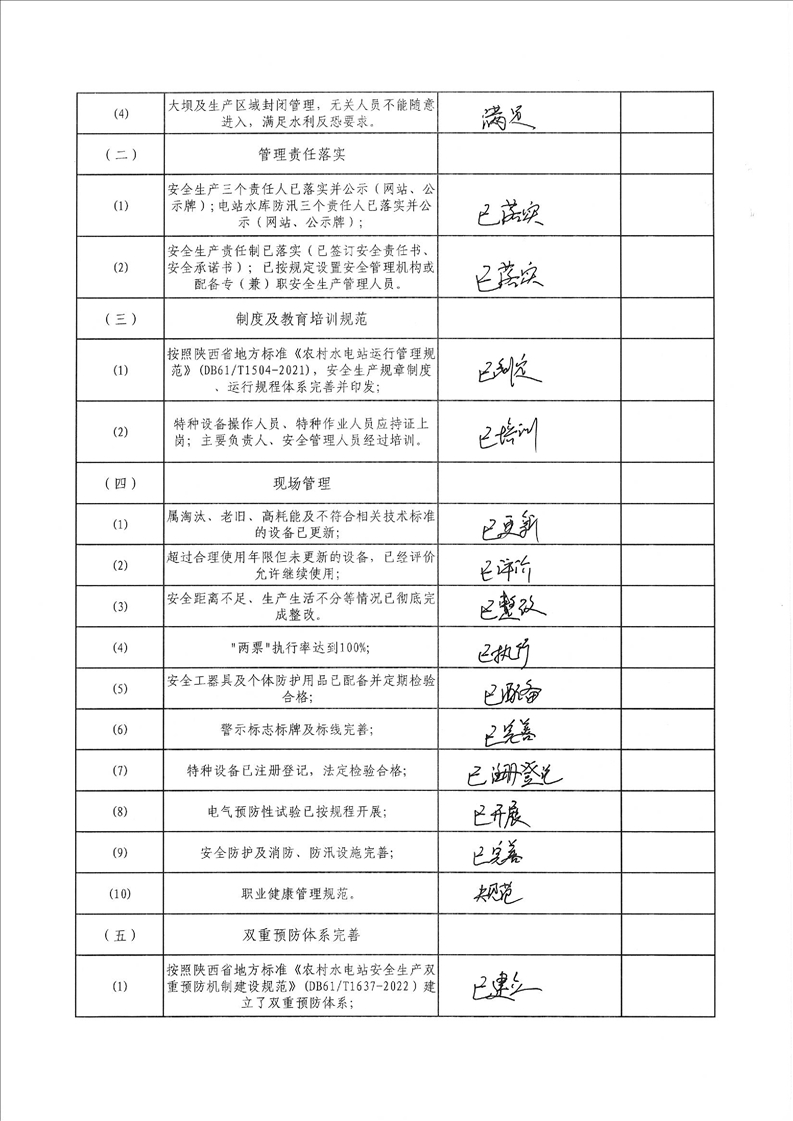 (4)
大坝及生产区域封闭管理，无关人员不能随意
进入，满足水利反恐要求。
满足
（二）
管理责任落实
(1)
安全生产三个责任人已落实并公示（网站、公
示牌）；电站水库防汛三个责任人已落实并公
示（网站、公示牌）；
已落实
(2)
安全生产责任制已落实（已签订安全责任书、
安全承诺书）；已按规定设置安全管理机构或
配备专（兼）职安全生产管理人员。
已落实
（三）
制度及教育培训规范
(1)
按照陕西省地方标准《农村水电站运行管理规
范》(DB61/T1504-2021)，安全生产规章制度
、运行规程体系完善并印发；
已制定
(2)
特种设备操作人员、特种作业人员应持证上
岗；主要负责人、安全管理人员经过培训。
已培训
（四）
现场管理
(1)
属淘汰、老旧、高耗能及不符合相关技术标准
的设备已更新；
已更新
(2)
超过合理使用年限但未更新的设备，已经评价
允许继续使用；
已评价
(3)
安全距离不足、生产生活不分等情况已彻底完
成整改。
已整改
(4)
"两票"执行率达到100%；
已执行
(5)
安全工器具及个体防护用品已配备并定期检验
合格；
已配备
(6)
警示标志标牌及标线完善；
已完善
(7)
特种设备已注册登记，法定检验合格；
已注册登记
(8)
电气预防性试验已按规程开展；
已开展
(9)
安全防护及消防、防汛设施完善；
已完善
(10)
职业健康管理规范。
规范
（五）
双重预防体系完善
(1)
按照陕西省地方标准《农村水电站安全生产双
重预防机制建设规范》(DB61/T1637-2022）建
立了双重预防体系；
已建立